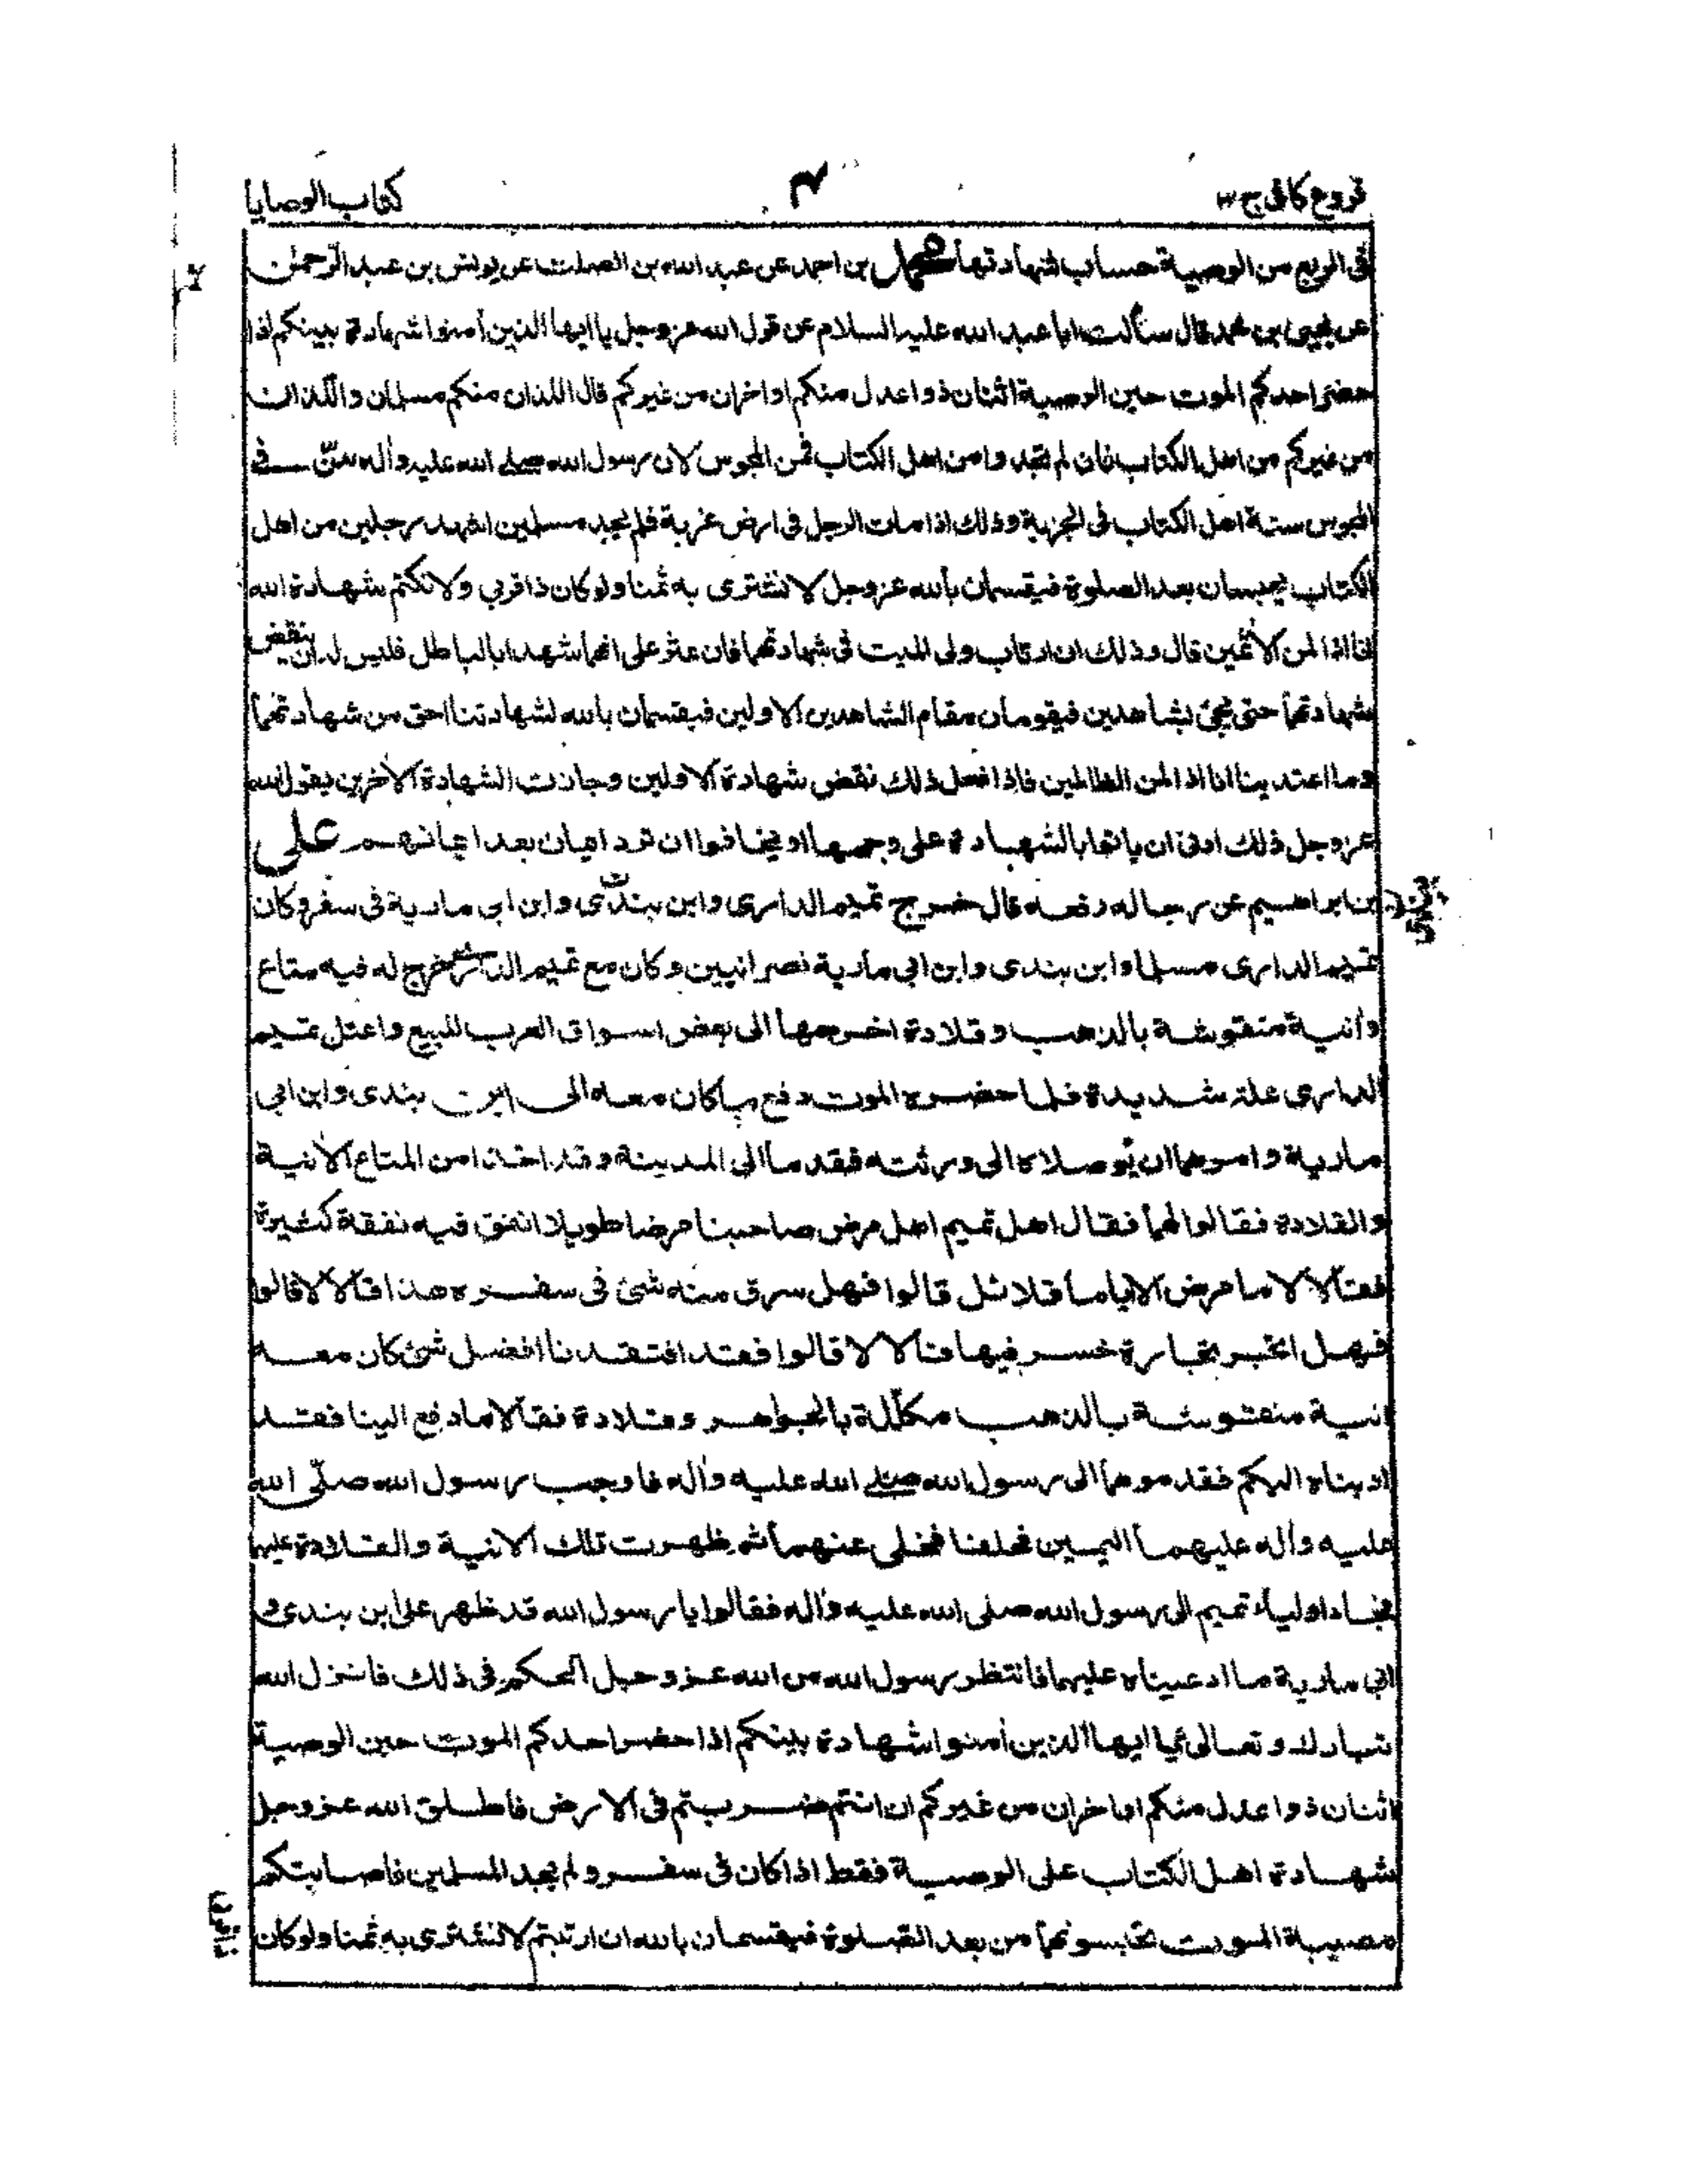 فروع كافى ج ٣
٤
كتاب الوصايا
فى الربع من الوصية بحساب شهادتها محمد بن احمد عن عبد الله بن الصلت عن يونس بن عبد الرحمن
عن يحيى بن محمد قال سألت ابا عبد الله عليه السلام عن قول الله عز وجل يا ايها الذين أمنوا شهادة بينكم اذا
حضر احدكم الموت حين الوصية اثنان ذوا عدل منكم او اخران من غيركم قال اللذان منكم مسلمان واللذان
من غيركم من اهل الكتاب فان لم تجدوا من اهل الكتاب فمن المجوس لان رسول الله صلى الله عليه وأله سنّ فى
المجوس سنة اهل الكتاب فى الجزية وذلك اذا مات الرجل فى ارض غربة فلم يجد مسلمين اشهد رجلين من اهل
الكتاب يحبسان بعد الصلوة فيقسمان بالله عز وجل لا نشترى به ثمنا ولو كان ذا قربى ولا نكتم شهادة الله
انا اذا لمن الأثمين قال وذلك ان ارتاب ولى الميت فى شهادتهما فان عثر على انهما شهدا بالباطل فليس له ان ينقض
شهادتهما حتى يجئ بشاهدين فيقومان مقام الشاهدين الاولين فيقسمان بالله لشهادتنا احق من شهادتهما
وما اعتدينا انا اذا لمن الظالمين فاذا فعل ذلك نقض شهادة الاولين وجازت الشهادة الأخرين يقول الله
عز وجل ذلك ادنى ان ياتوا بالشهادة على وجهها او يخافوا ان ترد ايمان بعد ايمانهم على
بن ابراهيم عن رجاله رفعه قال خرج تميم الدارى وابن بندى وابن ابى مارية فى سفر وكان
تميم الدارى مسلما وابن بندى وابن ابى مارية نصرانيين وكان مع تميم الدارى خرج له فيه متاع
وأنية منقوشة بالذهب وقلادة اخرجها الى بعض اسواق العرب للبيع واعتل تميم
الدارى علة شديدة فلما حضره الموت دفع ما كان معه الى ابن بندى وابن ابى
مارية وامرهما ان يوصلاه الى ورثته فقدما الى المدينة وقد اخذا من المتاع الأنية
والقلادة فقالوا لهما فقال اهل تميم اهل مرض صاحبنا مرضا طويلا انفق فيه نفقة كثيرة
فقالا لا ما مرض الا اياما قلائل قالوا فهل سرق منه شئ فى سفره هذا قالا لا قالوا
فهل اتجر تجارة خسر فيها قالا لا قالوا فقد افتقدنا افضل شئ كان معه
انية منقوشة بالذهب مكللة بالجواهر وقلادة فقالا ما دفع الينا فقد
اديناه اليكم فقدموهما الى رسول الله صلى الله عليه وأله فاوجب رسول الله صلّى الله
عليه وأله عليهما اليمين فحلفا فخلى عنهما ثم ظهرت تلك الانية والقلادة عليهما
فجاء اولياء تميم الى رسول الله صلى الله عليه وأله فقالوا يا رسول الله قد ظهر على ابن بندى و
ابى مارية ما ادعيناه عليهما فانتظر رسول الله من الله عز وجل الحكم فى ذلك فانزل الله
تبارك وتعالى يا ايها الذين أمنوا شهادة بينكم اذا حضر احدكم الموت حين الوصية
اثنان ذوا عدل منكم او اخران من غيركم ان انتم ضربتم فى الارض فاطلق الله عز وجل
شهادة اهل الكتاب على الوصية فقط اذا كان فى سفر ولم يجد المسلمين فاصابتكم
مصيبة الموت تحبسونهما من بعد الصلوة فيقسمان بالله ان ارتبتم لا نشترى به ثمنا ولو كان